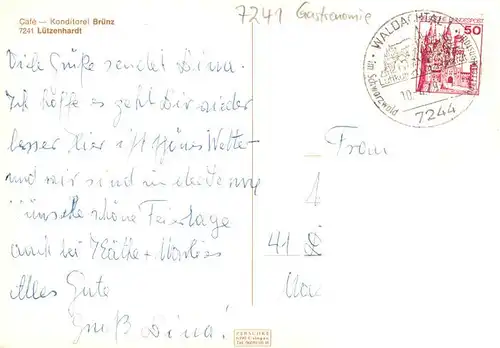 Café — Konditorei Brünz
7241 Lützenhardt
7241 Gastronomie
Viele Grüße sendet Dina.
Ich hoffe es geht Dir wieder
besser Hier ist schönes Wetter
und wir sind in der Sonne
Wünsche schöne Feiertage
auch bei Käthe + Marlies
Alles Gute
Gruß Dina!
WALDACHTAL
im Schwarzwald
7244
BUNDESPOST
50
Frau
41